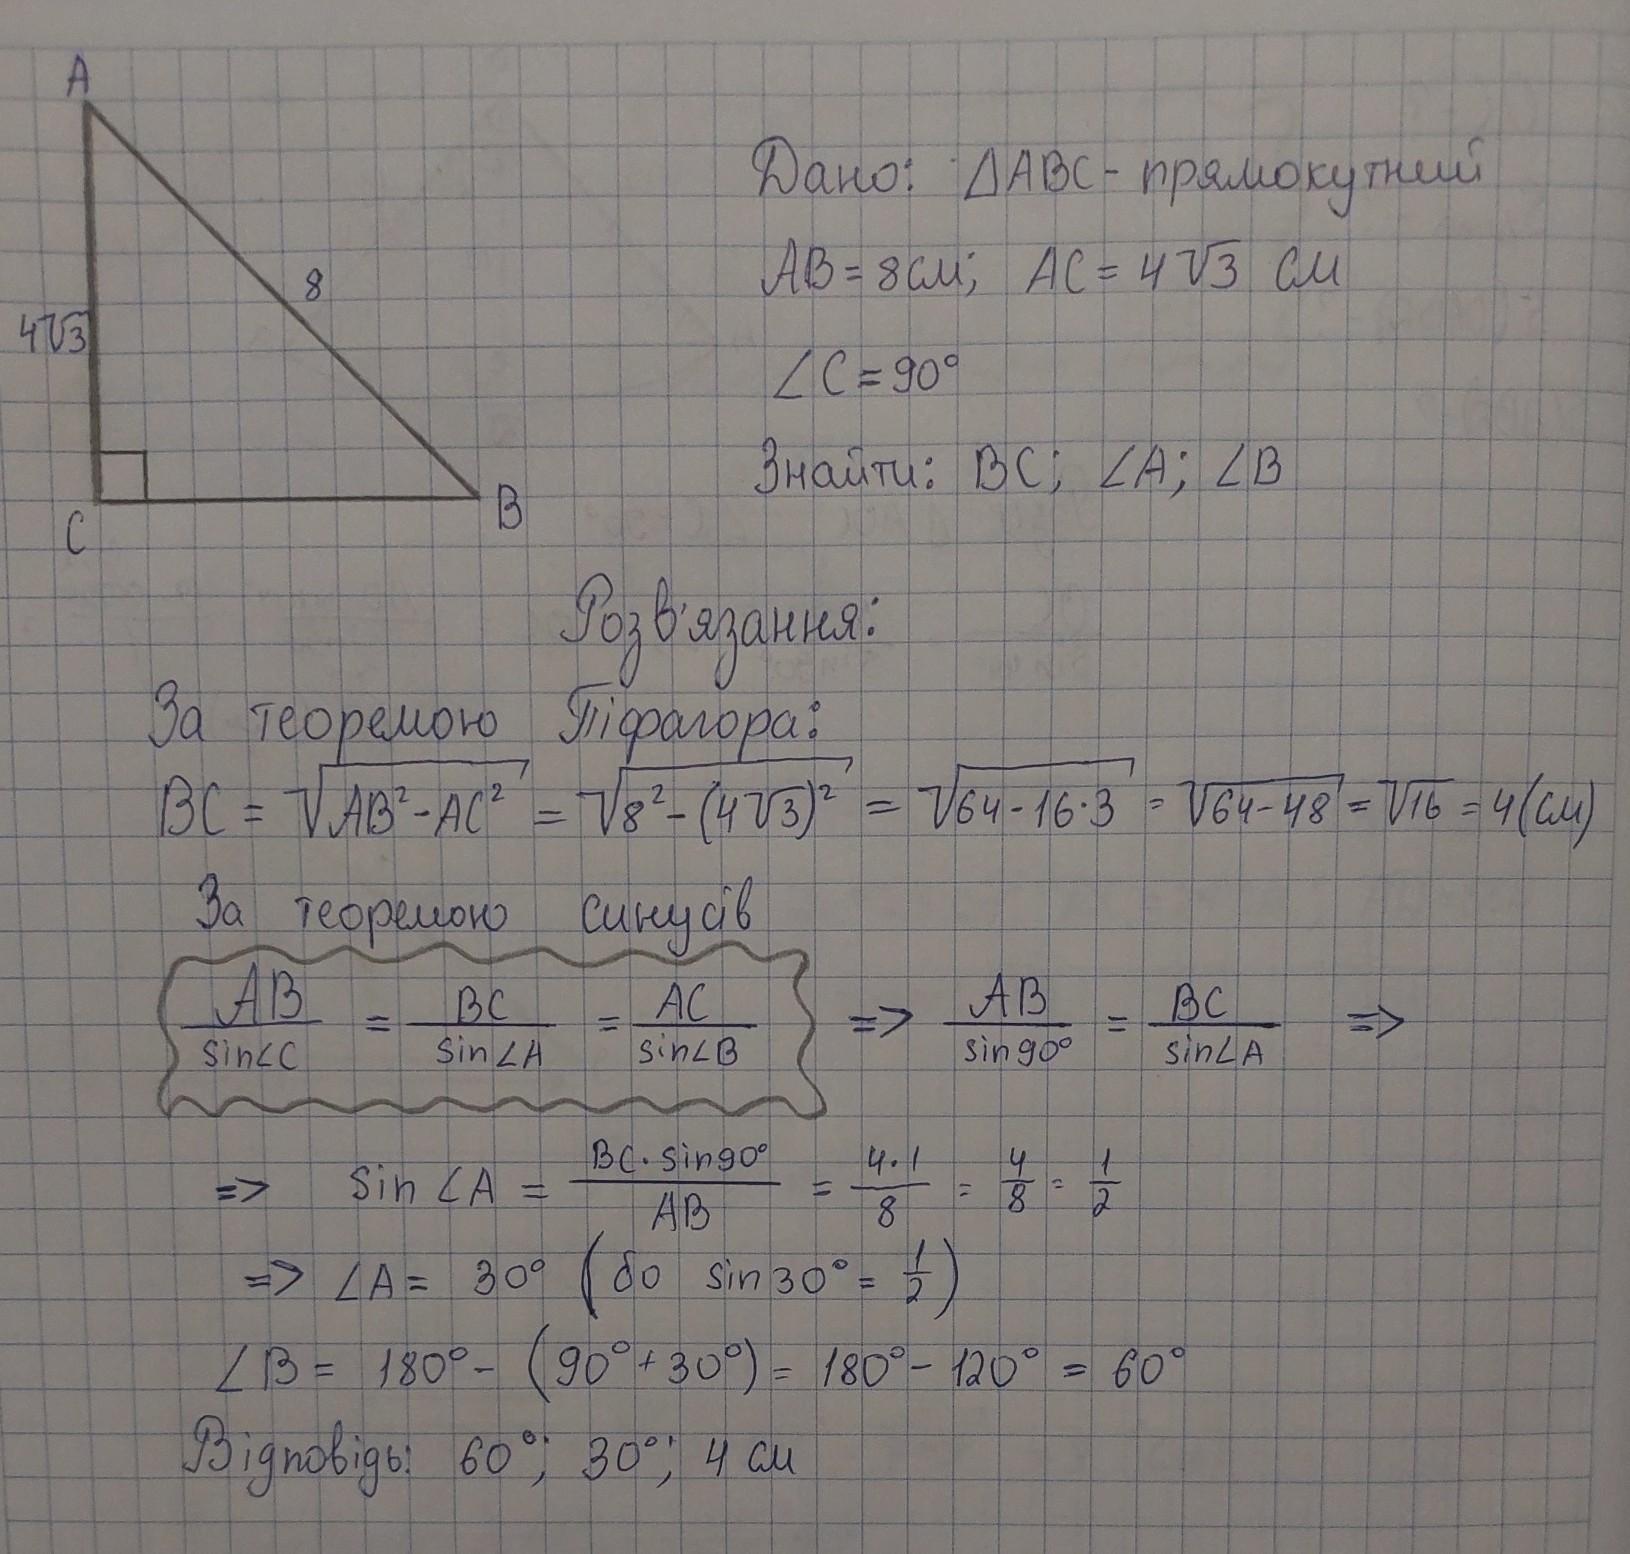 A
8
4√3
C
B
Дано: ΔABC - прямокутний
AB = 8см; AC = 4√3 см
∠C = 90°
Знайти: BC; ∠A; ∠B
Розв'язання:
За теоремою Піфагора:
BC = √(AB² - AC²) = √(8² - (4√3)²) = √(64 - 16·3) = √(64 - 48) = √16 = 4(см)
За теоремою синусів
AB/sin∠C = BC/sin∠A = AC/sin∠B => AB/sin90° = BC/sin∠A =>
=> sin∠A = BC·sin90°/AB = 4·1/8 = 4/8 = 1/2
=> ∠A = 30° (бо sin30° = 1/2)
∠B = 180° - (90° + 30°) = 180° - 120° = 60°
Відповідь: 60°; 30°; 4 см